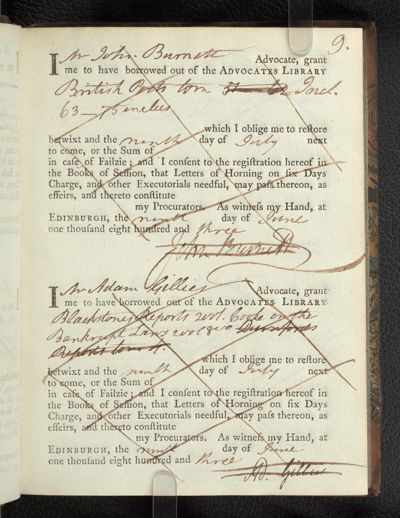 9.
I Mr John Burnett Advocate, grant
me to have borrowed out of the ADVOCATES LIBRARY
British Poets tom 51 - 62 Incl.
63 -
which I oblige me to reſtore
betwixt and the ninth day of July next
to come, or the Sum of
in caſe of Failzie; and I conſent to the regiſtration hereof in
the Books of Seſſion, that Letters of Horning on ſix Days
Charge, and other Executorials needful, may paſs thereon, as
effeirs, and thereto conſtitute
my Procurators. As witneſs my Hand, at
EDINBURGH, the ninth day of June
one thouſand eight hundred and three
John Burnett
I Mr Adam Gillies Advocate, grant
me to have borrowed out of the ADVOCATES LIBRARY
Blackstones Reports 2vol. Cooke on the
Bankrupt Laws 2vol 8vo Durnfords
Reports tom 4.
which I oblige me to reſtore
betwixt and the ninth day of July next
to come, or the Sum of
in caſe of Failzie; and I conſent to the regiſtration hereof in
the Books of Seſſion, that Letters of Horning on ſix Days
Charge, and other Executorials needful, may paſs thereon, as
effeirs, and thereto conſtitute
my Procurators. As witneſs my Hand, at
EDINBURGH, the ninth day of June
one thouſand eight hundred and three
Ad. Gillies